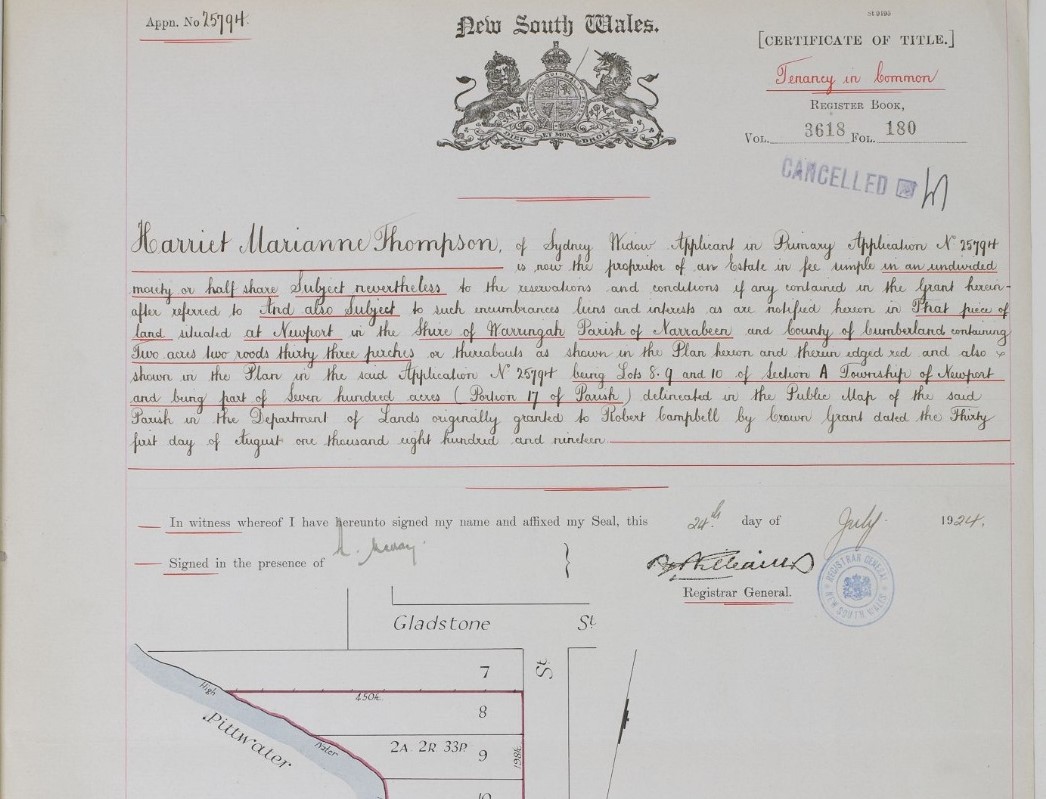 Appn. No 25794
New South Wales.
St 9195
[CERTIFICATE OF TITLE.]
Tenancy in Common
REGISTER BOOK,
VOL. 3618 FOL. 180
CANCELLED
DIEU ET MON DROIT
Harriet Marianne Thompson, of Sydney Widow Applicant in Primary Application No 25794
is now the proprietor of an Estate in fee simple in an undivided
moiety or half share Subject nevertheless to the reservations and conditions if any contained in the Grant herein-
after referred to And also Subject to such incumbrances liens and interests as are notified hereon in That piece of
land situated at Newport in the Shire of Warringah Parish of Narrabeen and County of Cumberland containing
Two acres two roods thirty three perches or thereabouts as shown in the Plan hereon and therein edged red and also
shown in the Plan in the said Application No 25794 being Lots 8. 9 and 10 of Section A Township of Newport
and being part of Seven hundred acres (Portion 17 of Parish) delineated in the Public Map of the said
Parish in the Department of Lands originally granted to Robert Campbell by Crown Grant dated the Thirty
first day of August one thousand eight hundred and nineteen
In witness whereof I have hereunto signed my name and affixed my Seal, this 24th day of July 1924.
Signed in the presence of
Registrar General.
REGISTRAR GENERAL NEW SOUTH WALES
Gladstone St
St
7
450k
8
High
Water
Pittwater
2A. 2R 33P.
9
198k
10